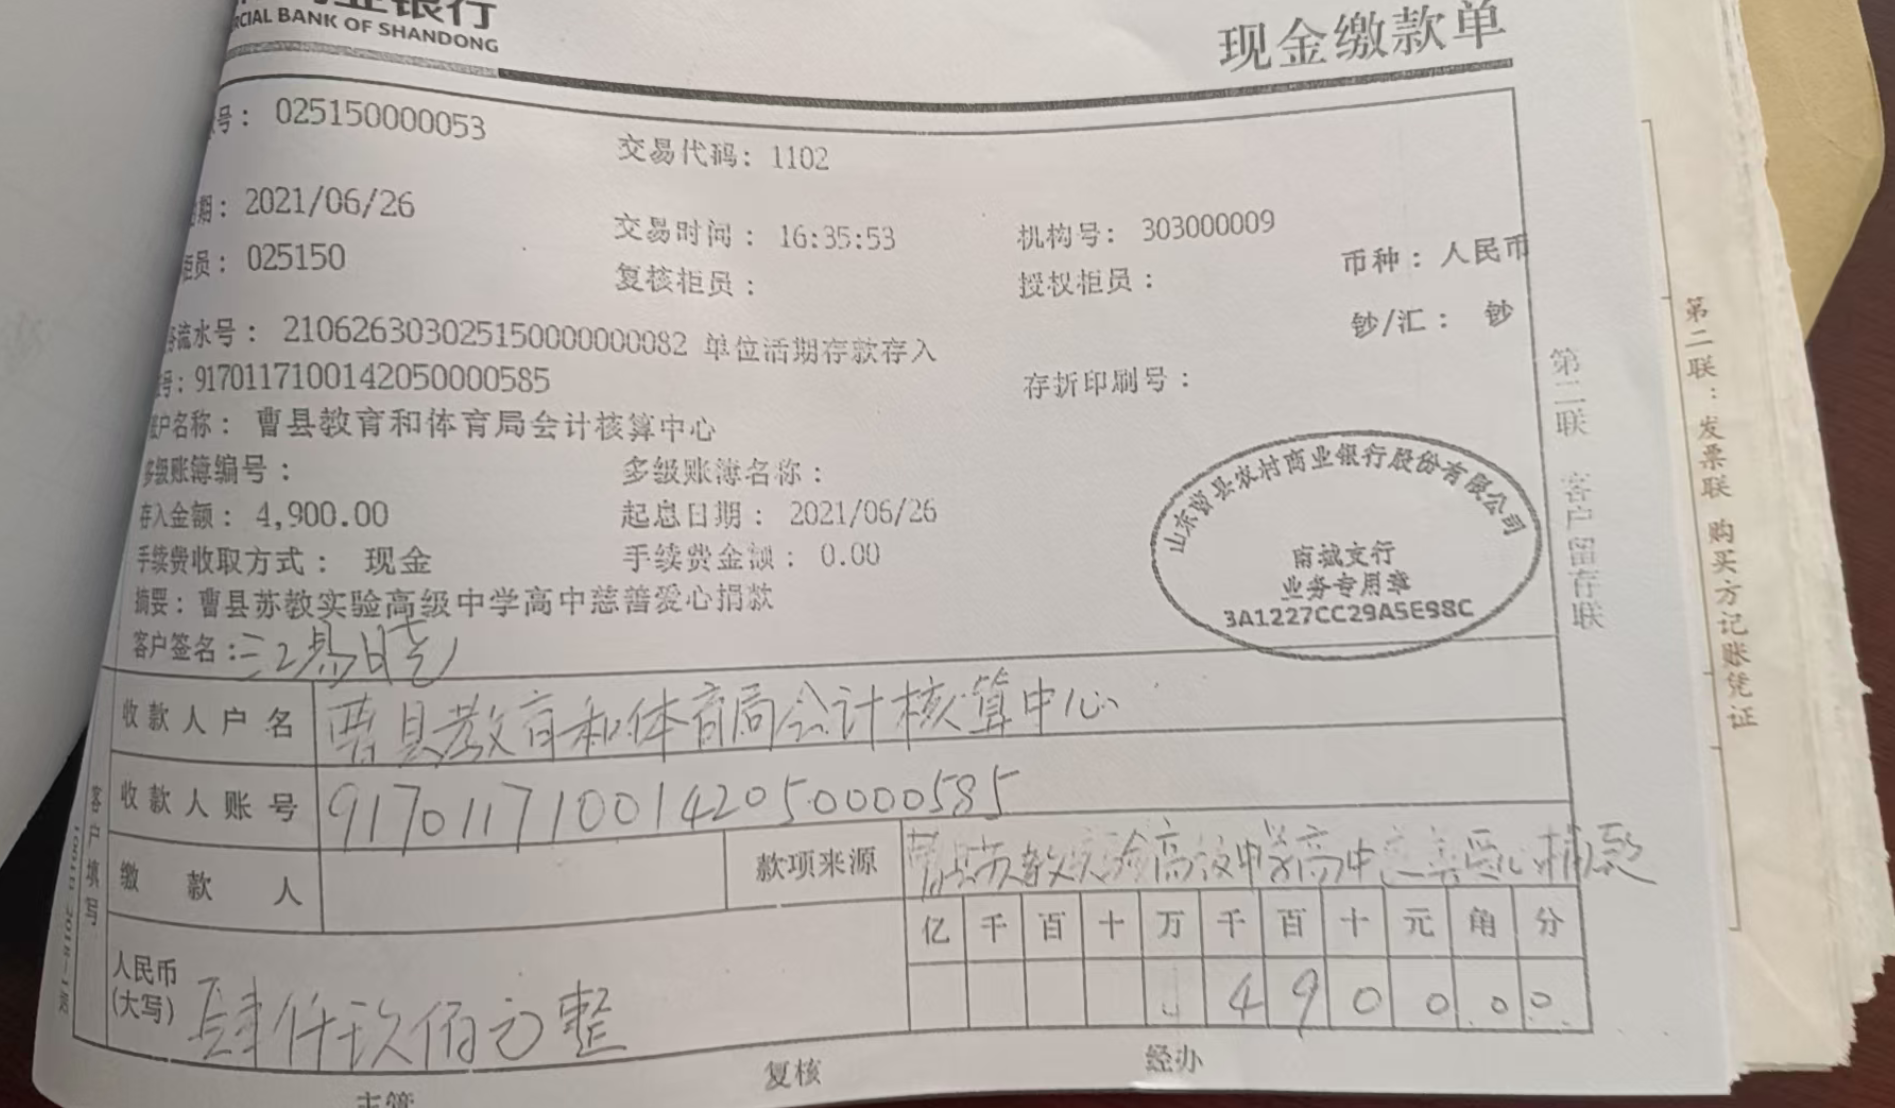 商业银行
RCIAL BANK OF SHANDONG
现金缴款单
号：025150000053
交易代码：1102
期：2021/06/26
交易时间：16:35:53
机构号：303000009
币种：人民币
柜员：025150
复核柜员：
授权柜员：
钞/汇：钞
流水号：21062630302515000000082 单位活期存款存入
号：9170117100142050000585
存折印刷号：
户名称：曹县教育和体育局会计核算中心
多级账簿编号：
多级账簿名称：
存入金额：4,900.00
起息日期：2021/06/26
手续费收取方式：现金
手续费金额：0.00
摘要：曹县苏教实验高级中学高中慈善爱心捐款
客户签名：
山东曹县农村商业银行股份有限公司
南城支行
业务专用章
3A1227CC29A5E98C
收款人户名 曹县教育和体育局会计核算中心
收款人账号 9170117100142050000585
缴款人
款项来源 曹县苏教实验高级中学高中慈善爱心捐款
人民币
(大写) 肆仟玖佰元整
亿 千 百 十 万 千 百 十 元 角 分
4 9 0 0 0 0
主管
复核
经办
客户填写
第二联 客户留存联
第二联：发票联 购买方记账凭证